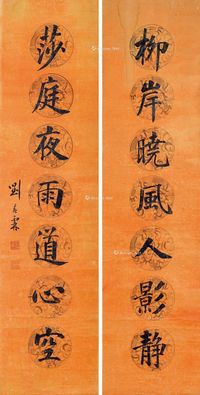 柳岸曉風人影靜
莎庭夜雨道心空
劉春霖